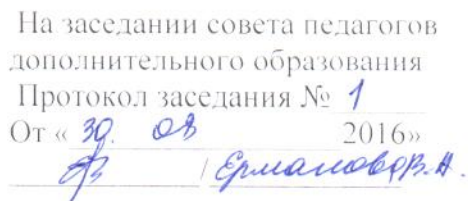 На заседании совета педагогов
дополнительного образования
Протокол заседания № 1
От « 30. 08 2016»
/ Ермакова В.Н.